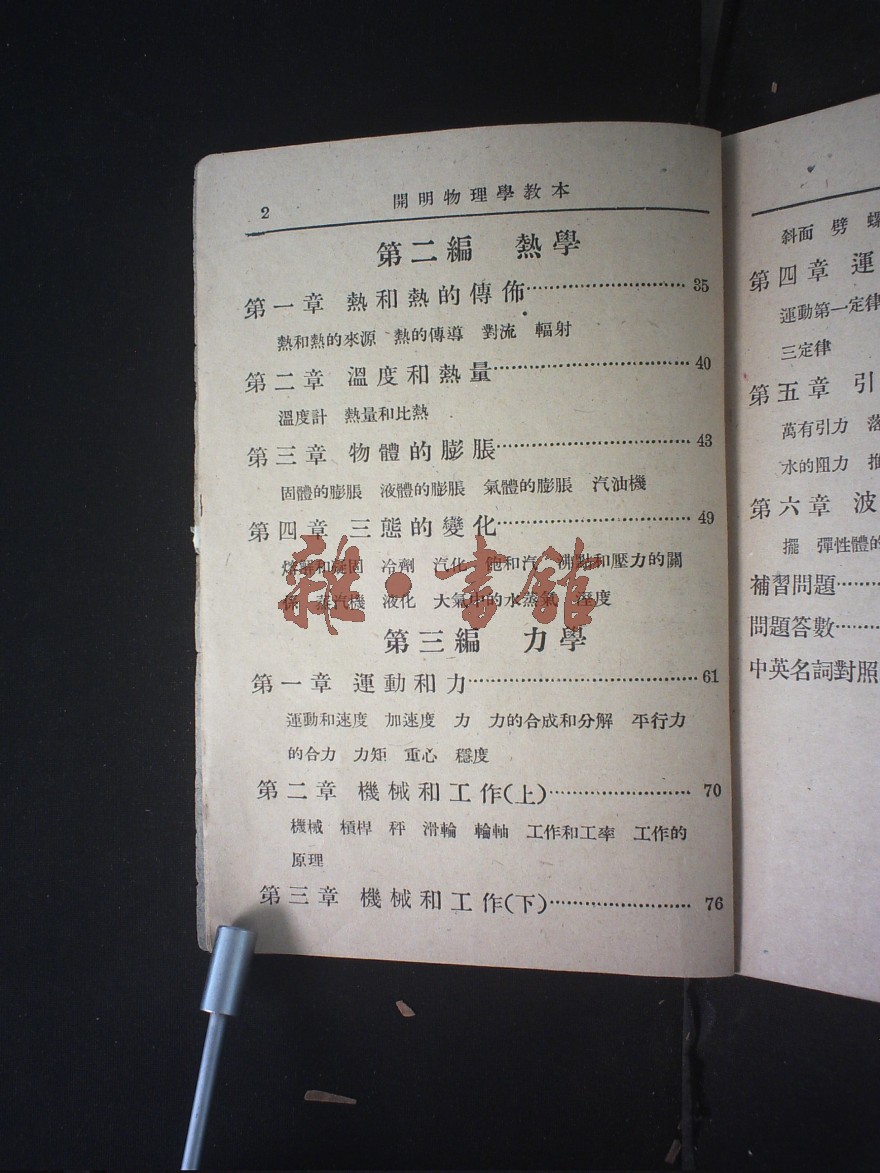 2
開明物理學教本
第二編　熱學
第一章　熱和熱的傳佈……………………35
熱和熱的來源　熱的傳導　對流　輻射
第二章　溫度和熱量……………………40
溫度計　熱量和比熱
第三章　物體的膨脹……………………43
固體的膨脹　液體的膨脹　氣體的膨脹　汽油機
第四章　三態的變化……………………49
熔解和凝固　冷劑　汽化　飽和汽　沸點和壓力的關
係　蒸汽機　液化　大氣中的水蒸氣　溼度
第三編　力學
第一章　運動和力……………………61
運動和速度　加速度　力　力的合成和分解　平行力
的合力　力矩　重心　穩度
第二章　機械和工作(上)……………………70
機械　槓桿　秤　滑輪　輪軸　工作和工率　工作的
原理
第三章　機械和工作(下)……………………76
雜·書館
斜面　劈　螺
第四章　運
運動第一定律
三定律
第五章　引
萬有引力　落
水的阻力
第六章　波
擺　彈性體的
補習問題………
問題答數………
中英名詞對照